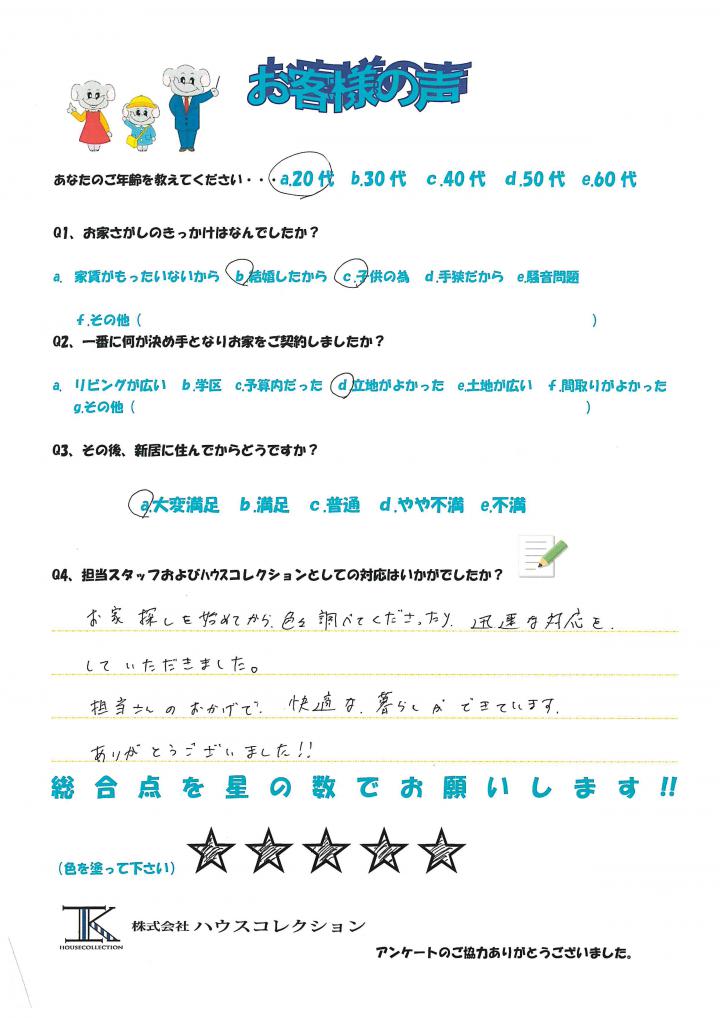 お客様の声
あなたのご年齢を教えてください・・・a.20代 b.30代 c.40代 d.50代 e.60代
Q1、お家さがしのきっかけはなんでしたか？
a. 家賃がもったいないから b.結婚したから c.子供の為 d.手狭だから e.騒音問題
f.その他（ ）
Q2、一番に何が決め手となりお家をご契約しましたか？
a. リビングが広い b.学区 c.予算内だった d.立地がよかった e.土地が広い f.間取りがよかった
g.その他（ ）
Q3、その後、新居に住んでからどうですか？
a.大変満足 b.満足 c.普通 d.やや不満 e.不満
Q4、担当スタッフおよびハウスコレクションとしての対応はいかがでしたか？
お家探しを始めてから、色々調べてくださったり、迅速な対応を、
していただきました。
担当さんのおかげで、快適な、暮らしができています。
ありがとうございました!!
総合点を星の数でお願いします!!
（色を塗って下さい）
HOUSECOLLECTION
株式会社 ハウスコレクション
アンケートのご協力ありがとうございました。